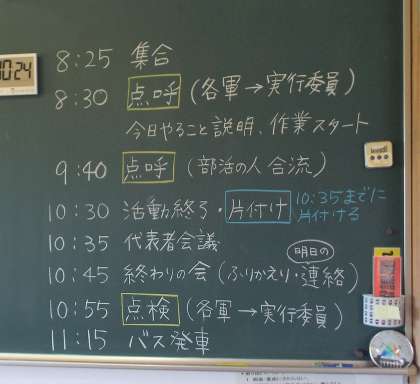 10:24
8:25 集合
8:30 点呼 (各軍→実行委員)
今日やること説明、作業スタート
9:40 点呼 (部活の人合流)
10:30 活動終了・片付け 10:35までに
片付ける
10:35 代表者会議
明日の
10:45 終わりの会 (ふりかえり・連絡)
10:55 点検 (各軍→実行委員)
11:15 バス発車